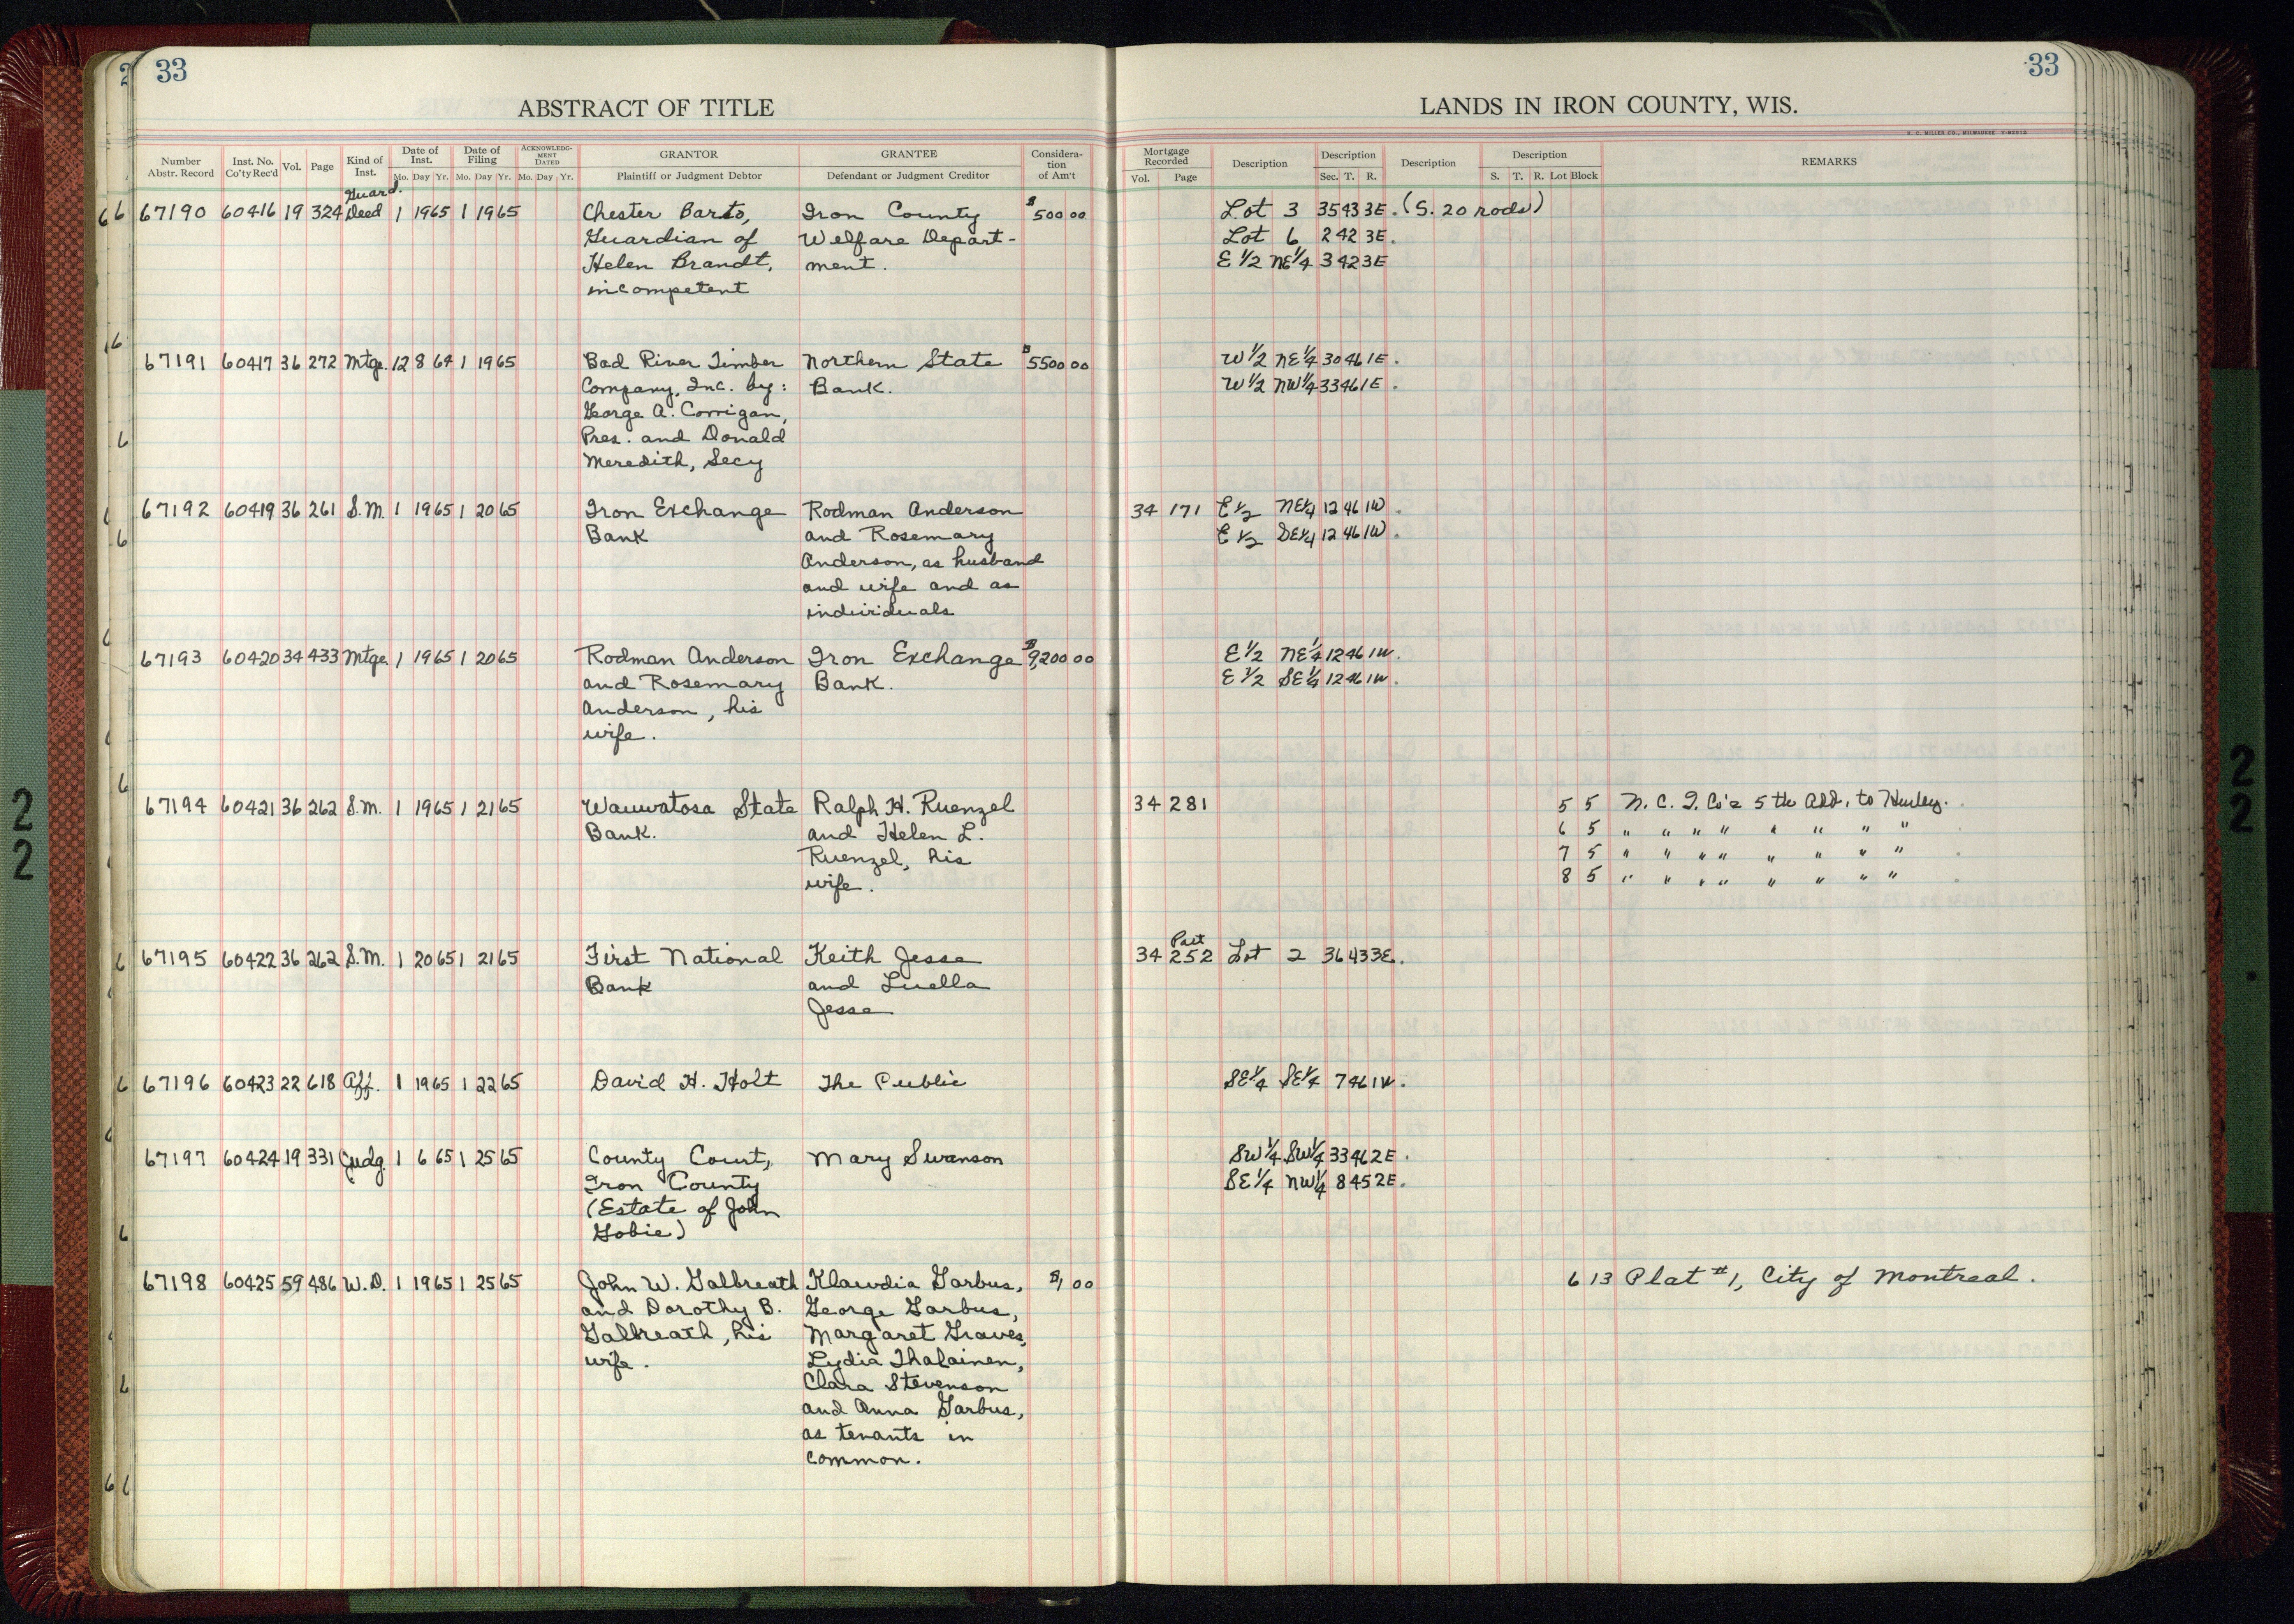 33
33
ABSTRACT OF TITLE
LANDS IN IRON COUNTY, WIS.
H. C. MILLER CO., MILWAUKEE
Number Abstr. Record Inst. No. Co'ty Rec'd Vol. Page Kind of Inst. Date of Inst. Mo. Day Yr. Date of Filing Mo. Day Yr. ACKNOWLEDGMENT DATED Mo. Day Yr. GRANTOR Plaintiff or Judgment Debtor GRANTEE Defendant or Judgment Creditor Consideration of Am't
Mortgage Recorded Vol. Page Description Description Sec. T. R. Description Description S. T. R. Lot Block REMARKS
Guard.
67190 60416 19 324 Deed 1 19 65 1 19 65 Chester Barto, Iron County $500 00 Lot 3 35 43 3E. (S. 20 rods)
Guardian of Welfare Depart- Lot 6 2 42 3E.
Helen Brandt, ment. E 1/2 NE 1/4 3 42 3E
incompetent
67191 60417 36 272 Mtge. 12 8 64 1 19 65 Bad River Timber Northern State $5500 00 W 1/2 NE 1/4 30 46 1E.
Company, Inc. by: Bank. W 1/2 NW 1/4 33 46 1E.
George A. Corrigan,
Pres. and Donald
Meredith, Secy
67192 60419 36 261 S.M. 1 19 65 1 20 65 Iron Exchange Rodman Anderson 34 171 E 1/2 NE 1/4 12 46 1W.
Bank and Rosemary E 1/2 SE 1/4 12 46 1W.
Anderson, as husband
and wife and as
individuals
67193 60420 34 433 Mtge. 1 19 65 1 20 65 Rodman Anderson Iron Exchange $9,200 00 E 1/2 NE 1/4 12 46 1W.
and Rosemary Bank. E 1/2 SE 1/4 12 46 1W.
Anderson, his
wife.
67194 60421 36 262 S.M. 1 19 65 1 21 65 Wauwatosa State Ralph H. Ruenzel 34 281 5 5 N. C. I. Co's 5th Add. to Hurley.
Bank. and Helen L. 6 5 " " " " " " " "
Ruenzel, his 7 5 " " " " " " " "
wife. 8 5 " " " " " " " "
Part
67195 60422 36 262 S.M. 1 20 65 1 21 65 First National Keith Jesse 34 252 Lot 2 36 43 3E.
Bank and Luella
Jesse
67196 60423 22 618 Aff. 1 19 65 1 22 65 David H. Holt The Public SE 1/4 SE 1/4 7 46 1W.
67197 60424 19 331 Judg. 1 6 65 1 25 65 County Court, Mary Swanson SW 1/4 SW 1/4 33 46 2E.
Iron County SE 1/4 NW 1/4 8 45 2E.
(Estate of John
Gobie)
67198 60425 59 486 W.D. 1 19 65 1 25 65 John W. Galbreath Klawdia Garbus, $1 00 6 13 Plat #1, City of Montreal.
and Dorothy B. George Garbus,
Galbreath, his Margaret Graves,
wife. Lydia Thalainen,
Clara Stevenson
and Anna Garbus,
as tenants in
common.
22
2
22
2